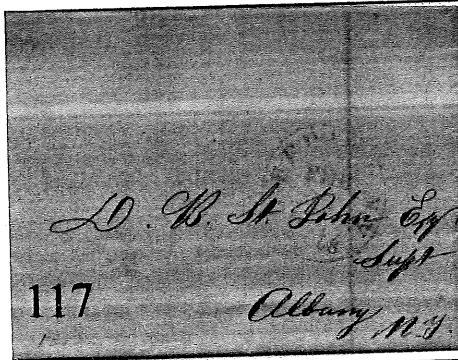 D. B. St. John Esq
Supt
117
Albany
N.Y.